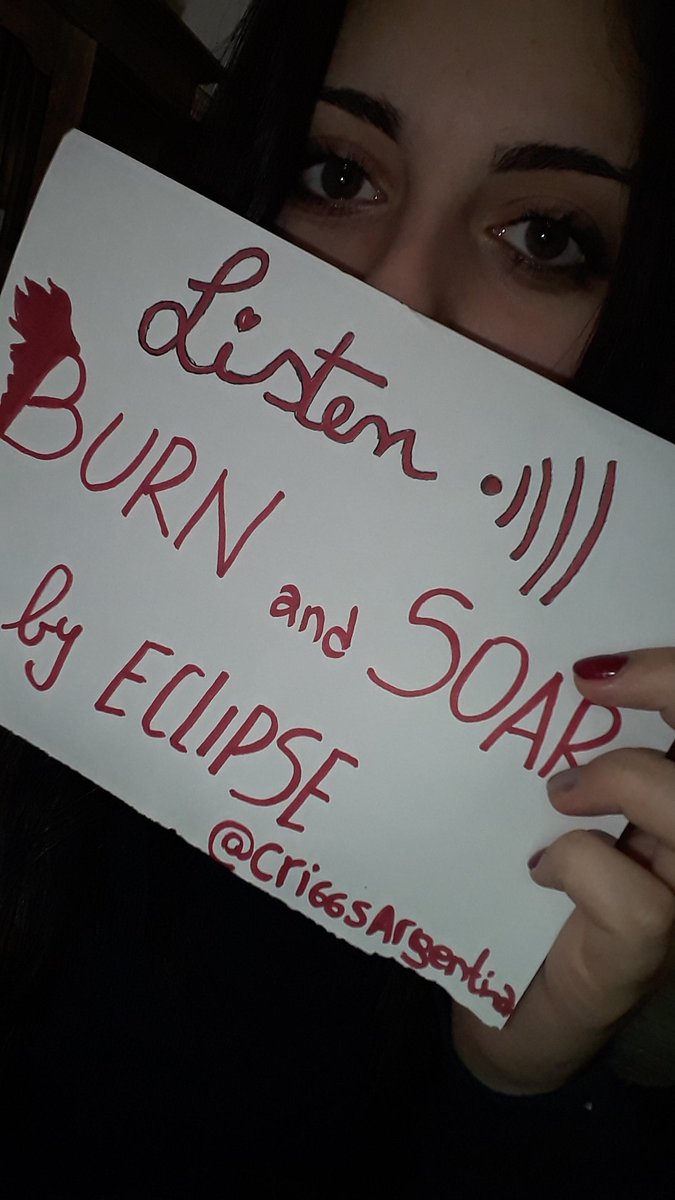 Listen
BURN and SOAR
by ECLIPSE
@CriggsArgentina